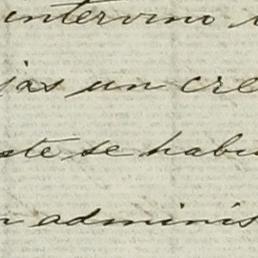 intervino
jas un cre
ste se habi
n adminis